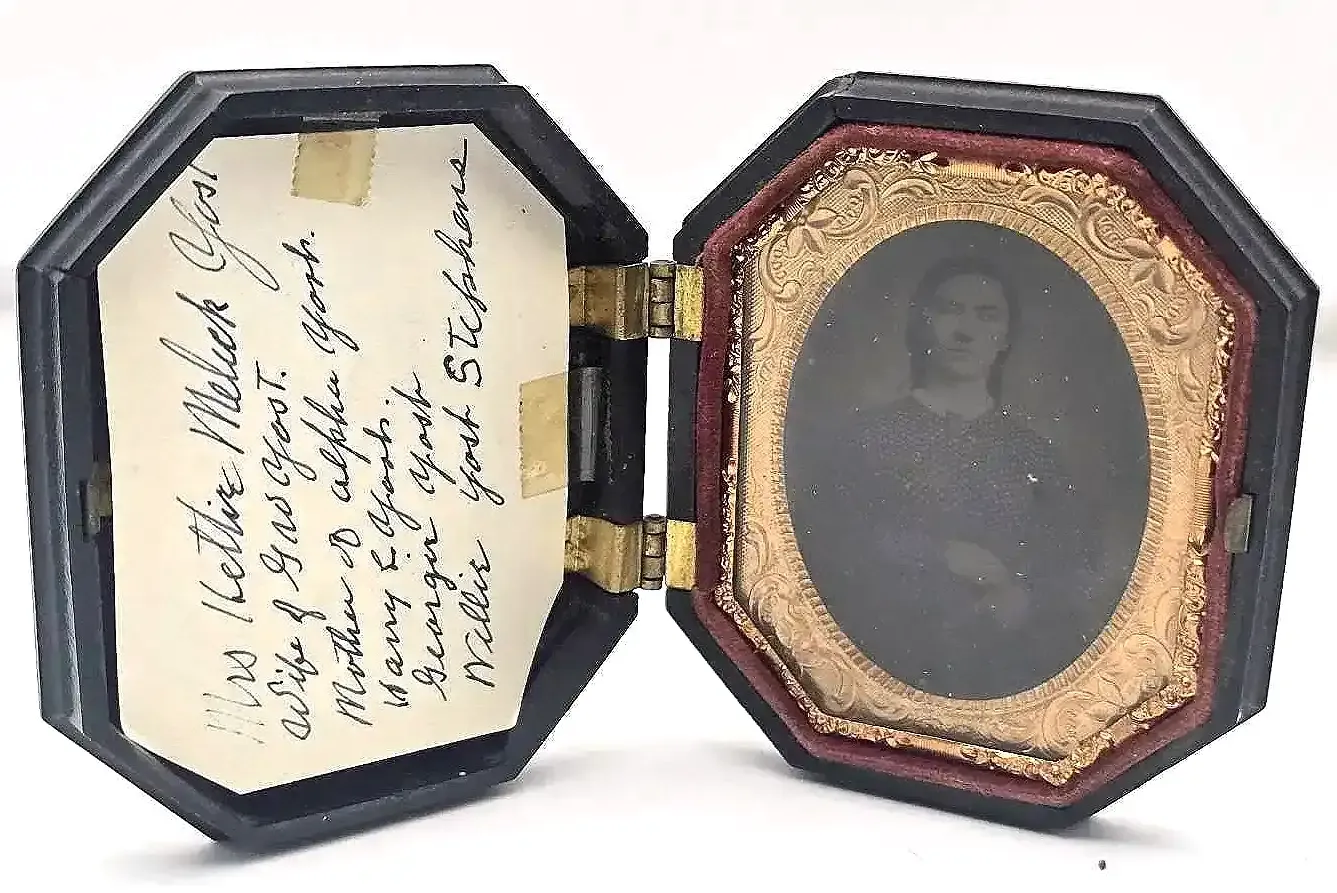 Mrs Kettie Melick Yost
Wife of Geo Yost.
Mother of alpha Yost.
Harry L. Yost.
George Yost
Nellie Yost Stephens